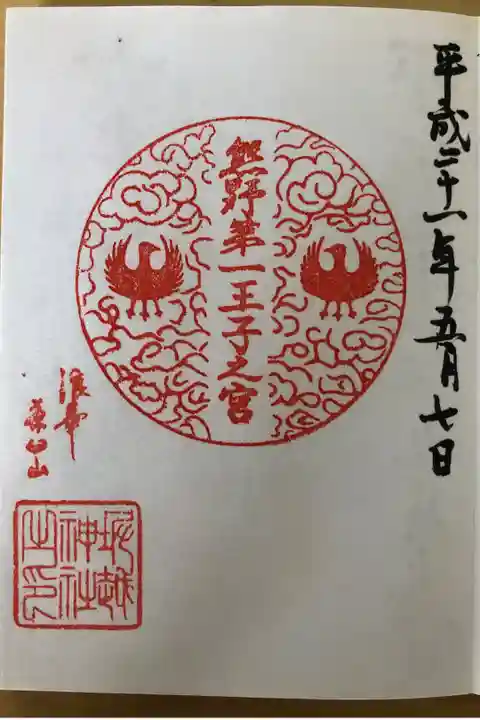 平成二十一年五月七日
熊野第一王子之宮
浪華
森山
坐摩神社之印